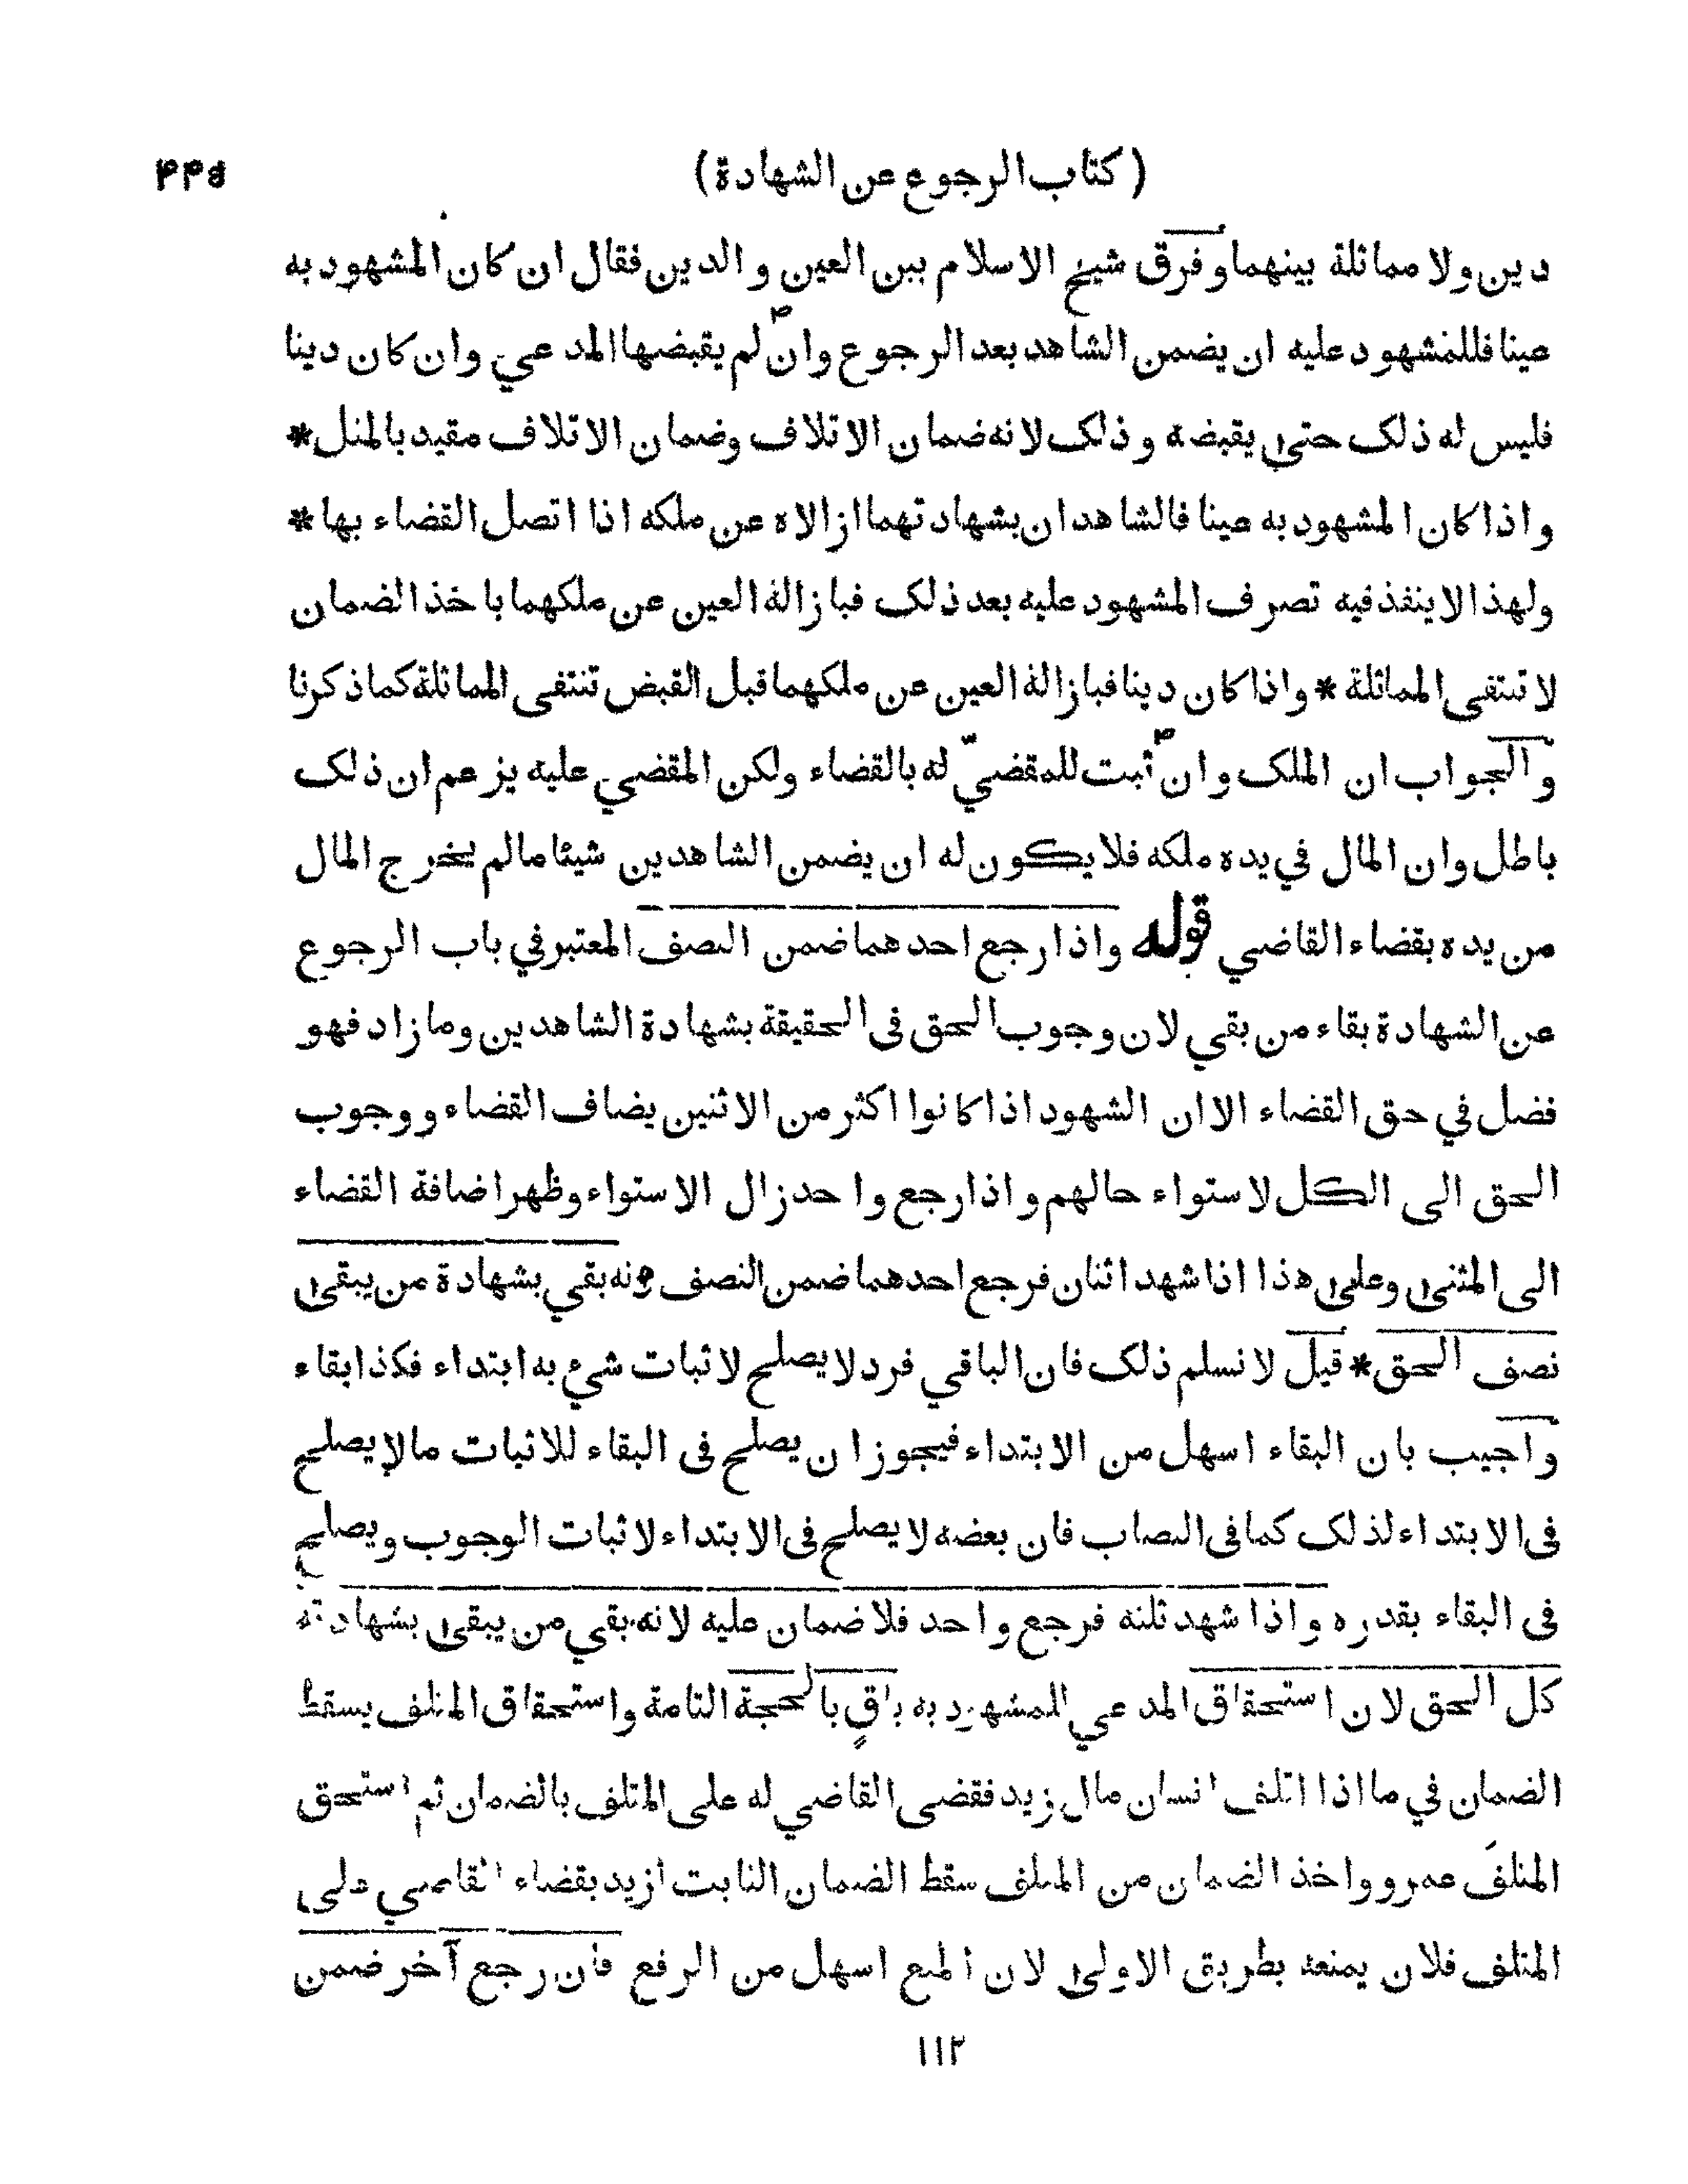 ( كتاب الرجوع عن الشهادة )
دين ولا مماثلة بينهما وفرق شيخ الاسلام بين العين والدين فقال ان كان المشهود به
عينا فللمشهود عليه ان يضمن الشاهد بعد الرجوع وان لم يقبضها المدعي وان كان دينا
فليس له ذلك حتى يقبضه وذلك لانه ضمان الاتلاف وضمان الاتلاف مقيد بالمثل *
واذا كان المشهود به عينا فالشاهدان بشهادتهما ازالاه عن ملكه اذا اتصل القضاء بها *
ولهذا لا ينفذ فيه تصرف المشهود عليه بعد ذلك فبازالة العين عن ملكهما باخذ الضمان
لا تنتفى المماثلة * واذا كان دينا فبازالة العين عن ملكهما قبل القبض تنتفى المماثلة كما ذكرنا
والجواب ان الملك وان ثبت للمقضيّ له بالقضاء ولكن المقضي عليه يزعم ان ذلك
باطل وان المال في يده ملكه فلا يكون له ان يضمن الشاهدين شيئا مالم يخرج المال
من يده بقضاء القاضي قوله واذا رجع احدهما ضمن النصف المعتبر في باب الرجوع
عن الشهادة بقاء من بقي لان وجوب الحق فى الحقيقة بشهادة الشاهدين وما زاد فهو
فضل في حق القضاء الا ان الشهود اذا كانوا اكثر من الاثنين يضاف القضاء ووجوب
الحق الى الكل لاستواء حالهم واذا رجع واحد زال الاستواء وظهر اضافة القضاء
الى المثنى وعلى هذا اذا شهد اثنان فرجع احدهما ضمن النصف لانه بقي بشهادة من يبقى
نصف الحق * قيل لا نسلم ذلك فان الباقي فرد لا يصلح لاثبات شيء به ابتداء فكذا بقاء
واجيب بان البقاء اسهل من الابتداء فيجوز ان يصلح فى البقاء للاثبات مالا يصلح
فى الابتداء لذلك كما فى النصاب فان بعضه لا يصلح فى الابتداء لاثبات الوجوب ويصلح
فى البقاء بقدره واذا شهد ثلثه فرجع واحد فلا ضمان عليه لانه بقي من يبقى بشهادته
كل الحق لان استحقاق المدعي للمشهود به باقٍ بالحجة التامة واستحقاق المتلف يسقط
الضمان في ما اذا اتلف انسان مال زيد فقضى القاضي له على المتلف بالضمان ثم استحق
المتلفَ عمرو واخذ الضمان من المتلف سقط الضمان الثابت لزيد بقضاء القاضي على
المتلف فلان يمنعه بطريق الاولى لان المنع اسهل من الرفع فان رجع آخر ضمن
١١٢